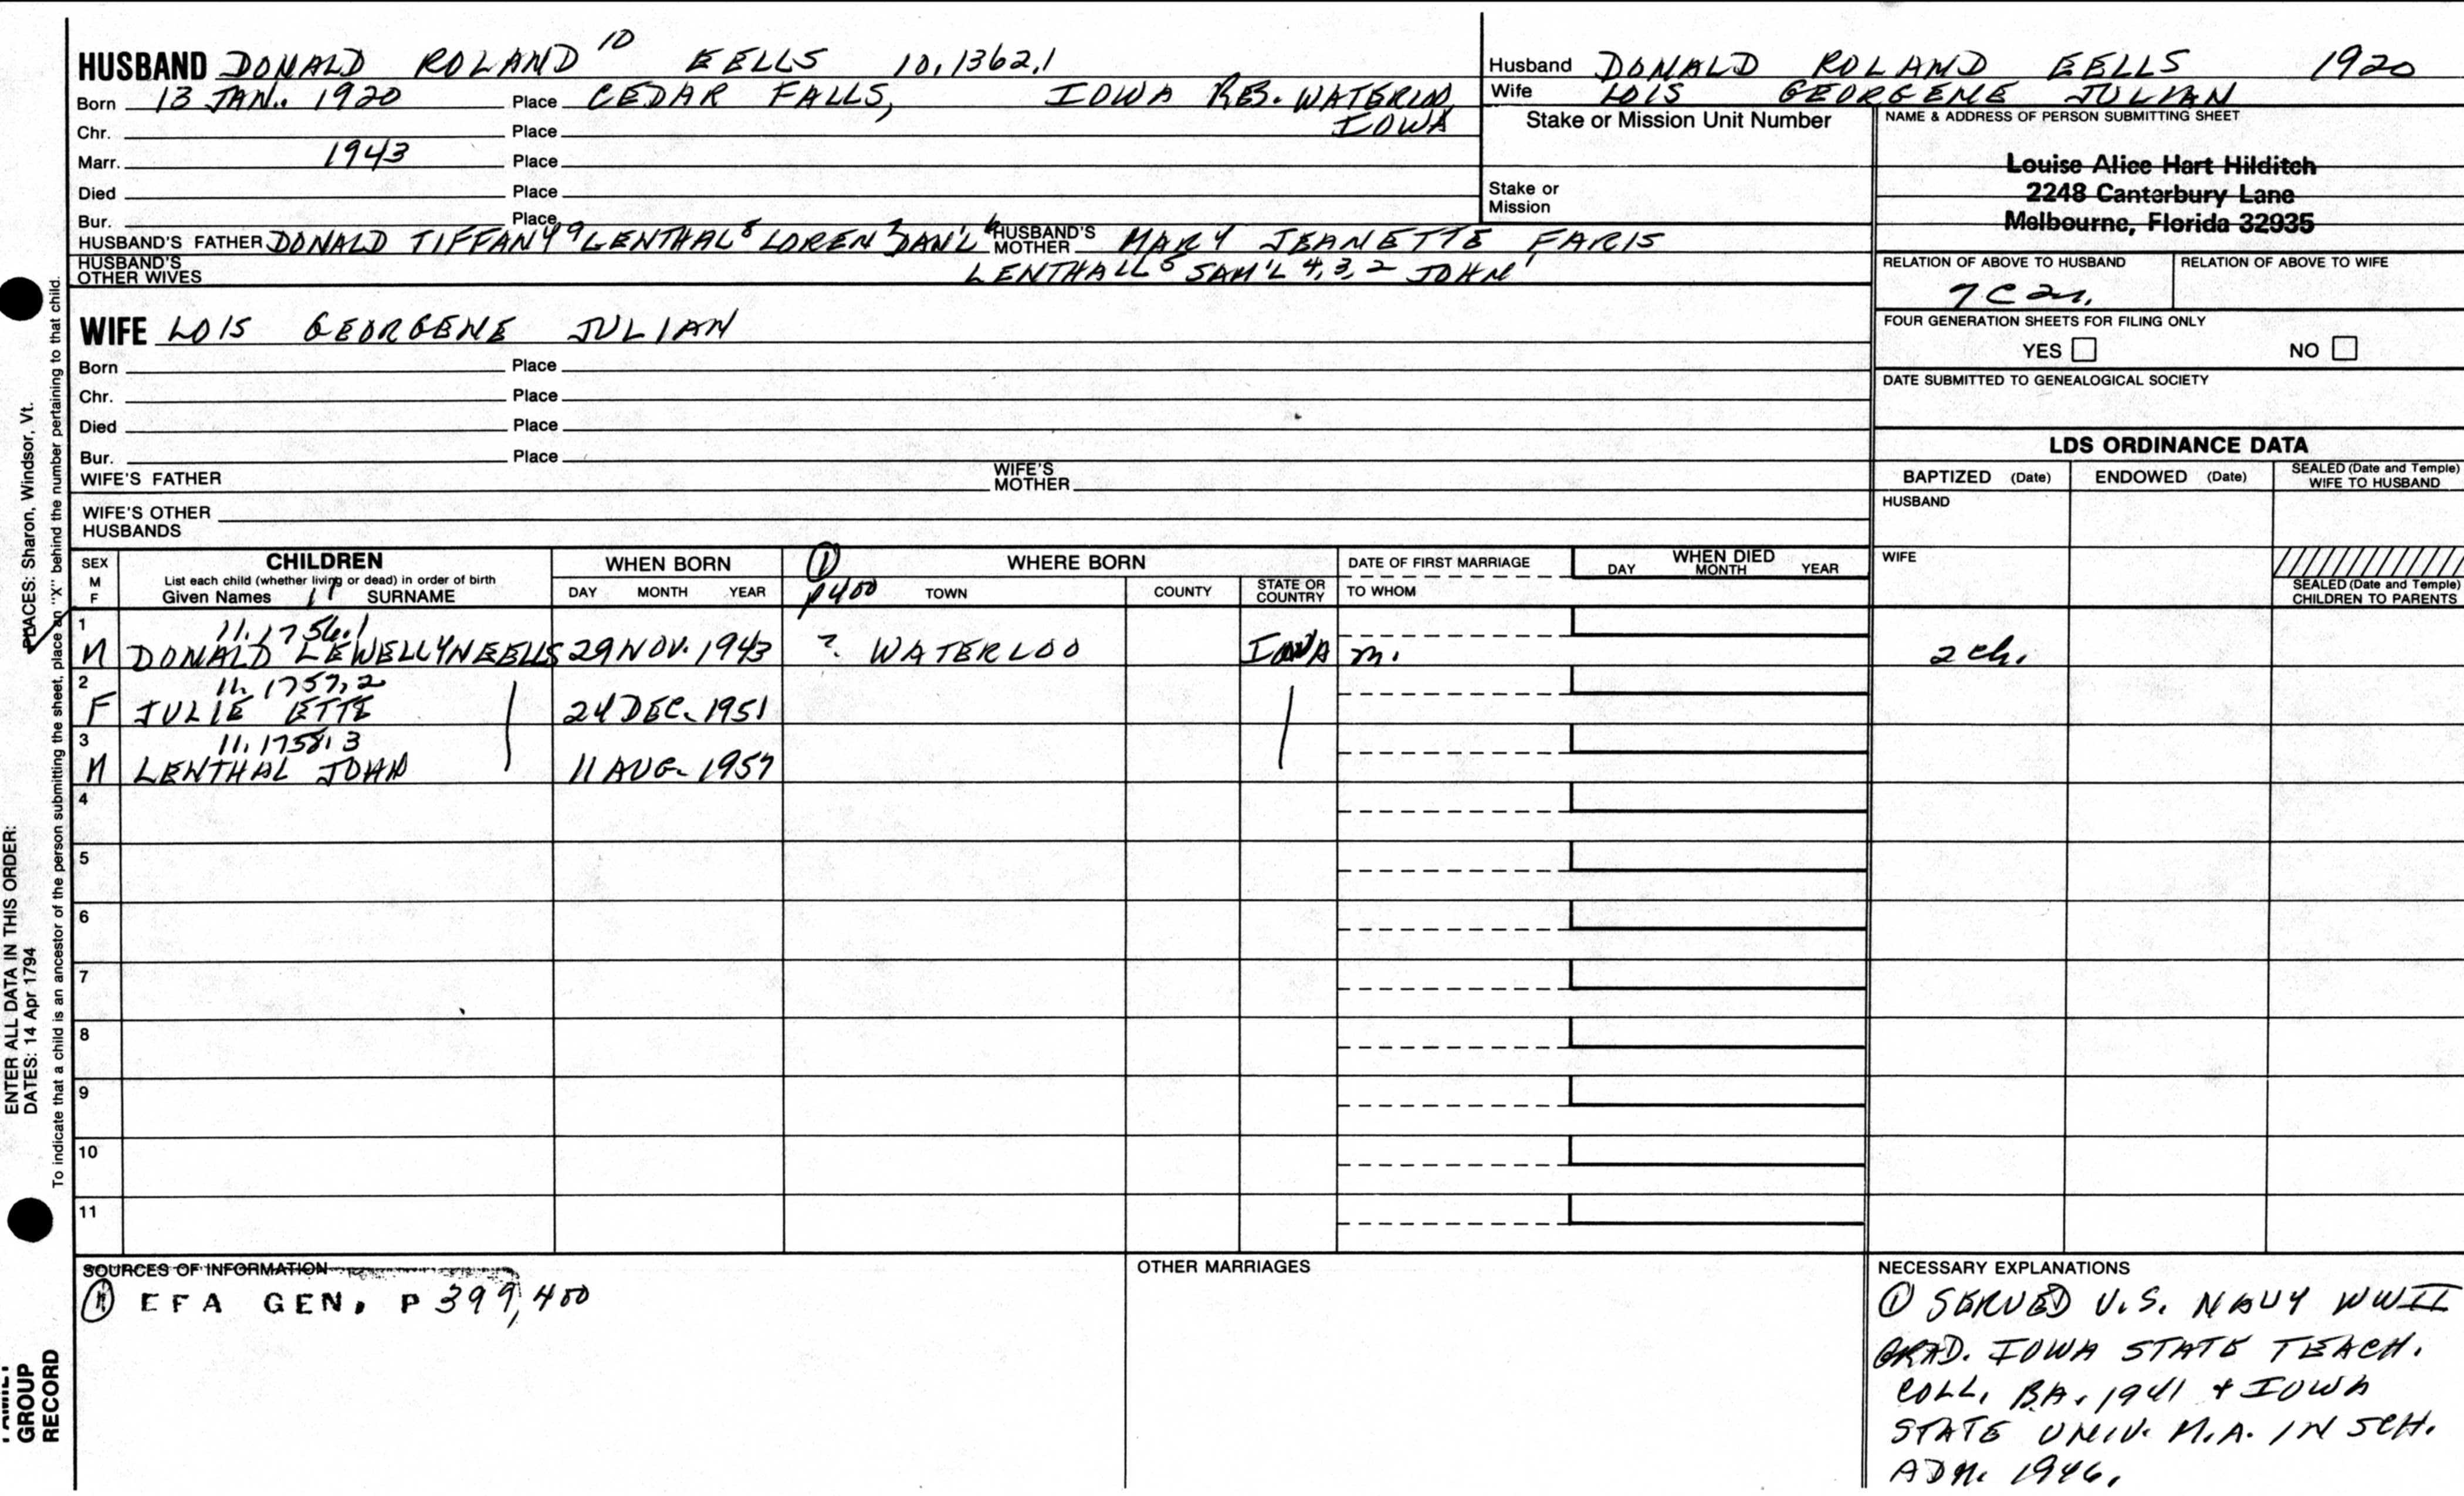 HUSBAND DONALD ROLAND 10 EELLS 10,1362,1
Born 13 JAN. 1920 Place CEDAR FALLS, IOWA RES. WATERLOO, IOWA
Chr. Place
Marr. 1943 Place
Died Place
Bur. Place
HUSBAND'S FATHER DONALD TIFFANY 9 LENTHAL 8 LOREN 7 DAN'L 6 HUSBAND'S MOTHER MARY JEANETTE FARIS
HUSBAND'S OTHER WIVES LENTHALL 5 SAM'L 4,3,2 JOHN 1
WIFE LOIS GEORGENE JULIAN
Born Place
Chr. Place
Died Place
Bur. Place
WIFE'S FATHER WIFE'S MOTHER
WIFE'S OTHER HUSBANDS
Husband DONALD ROLAND EELLS 1920
Wife LOIS GEORGENE JULIAN
Stake or Mission Unit Number
Stake or Mission
NAME & ADDRESS OF PERSON SUBMITTING SHEET
Louise Alice Hart Hilditch
2248 Canterbury Lane
Melbourne, Florida 32935
RELATION OF ABOVE TO HUSBAND RELATION OF ABOVE TO WIFE
7C
FOUR GENERATION SHEETS FOR FILING ONLY
YES NO
DATE SUBMITTED TO GENEALOGICAL SOCIETY
LDS ORDINANCE DATA
BAPTIZED (Date) ENDOWED (Date) SEALED (Date and Temple) WIFE TO HUSBAND
HUSBAND
WIFE
SEALED (Date and Temple) CHILDREN TO PARENTS
SEX M F
CHILDREN
List each child (whether living or dead) in order of birth
Given Names 11 SURNAME
WHEN BORN
DAY MONTH YEAR
1 WHERE BORN
p400 TOWN COUNTY STATE OR COUNTRY
DATE OF FIRST MARRIAGE
TO WHOM
WHEN DIED
DAY MONTH YEAR
1 11.1756.1
M DONALD LEWELLYN EELLS 29 NOV. 1943 ? WATERLOO IOWA m. 2 ch.
2 11.1757,2
F JULIE ETTE 24 DEC. 1951
3 11.1758,3
M LENTHAL JOHN 11 AUG. 1957
4
5
6
7
8
9
10
11
SOURCES OF INFORMATION
EFA GEN. P 399, 400
OTHER MARRIAGES
NECESSARY EXPLANATIONS
① SERVED U.S. NAVY WWII
GRAD. IOWA STATE TEACH.
COLL. BA. 1941 + IOWA
STATE UNIV. M.A. IN SCH.
ADM. 1946.
PLACES: Sharon, Windsor, Vt.
To indicate that a child is an ancestor of the person submitting the sheet, place an "X" behind the number pertaining to that child.
ENTER ALL DATA IN THIS ORDER:
DATES: 14 Apr 1794
FAMILY
GROUP
RECORD